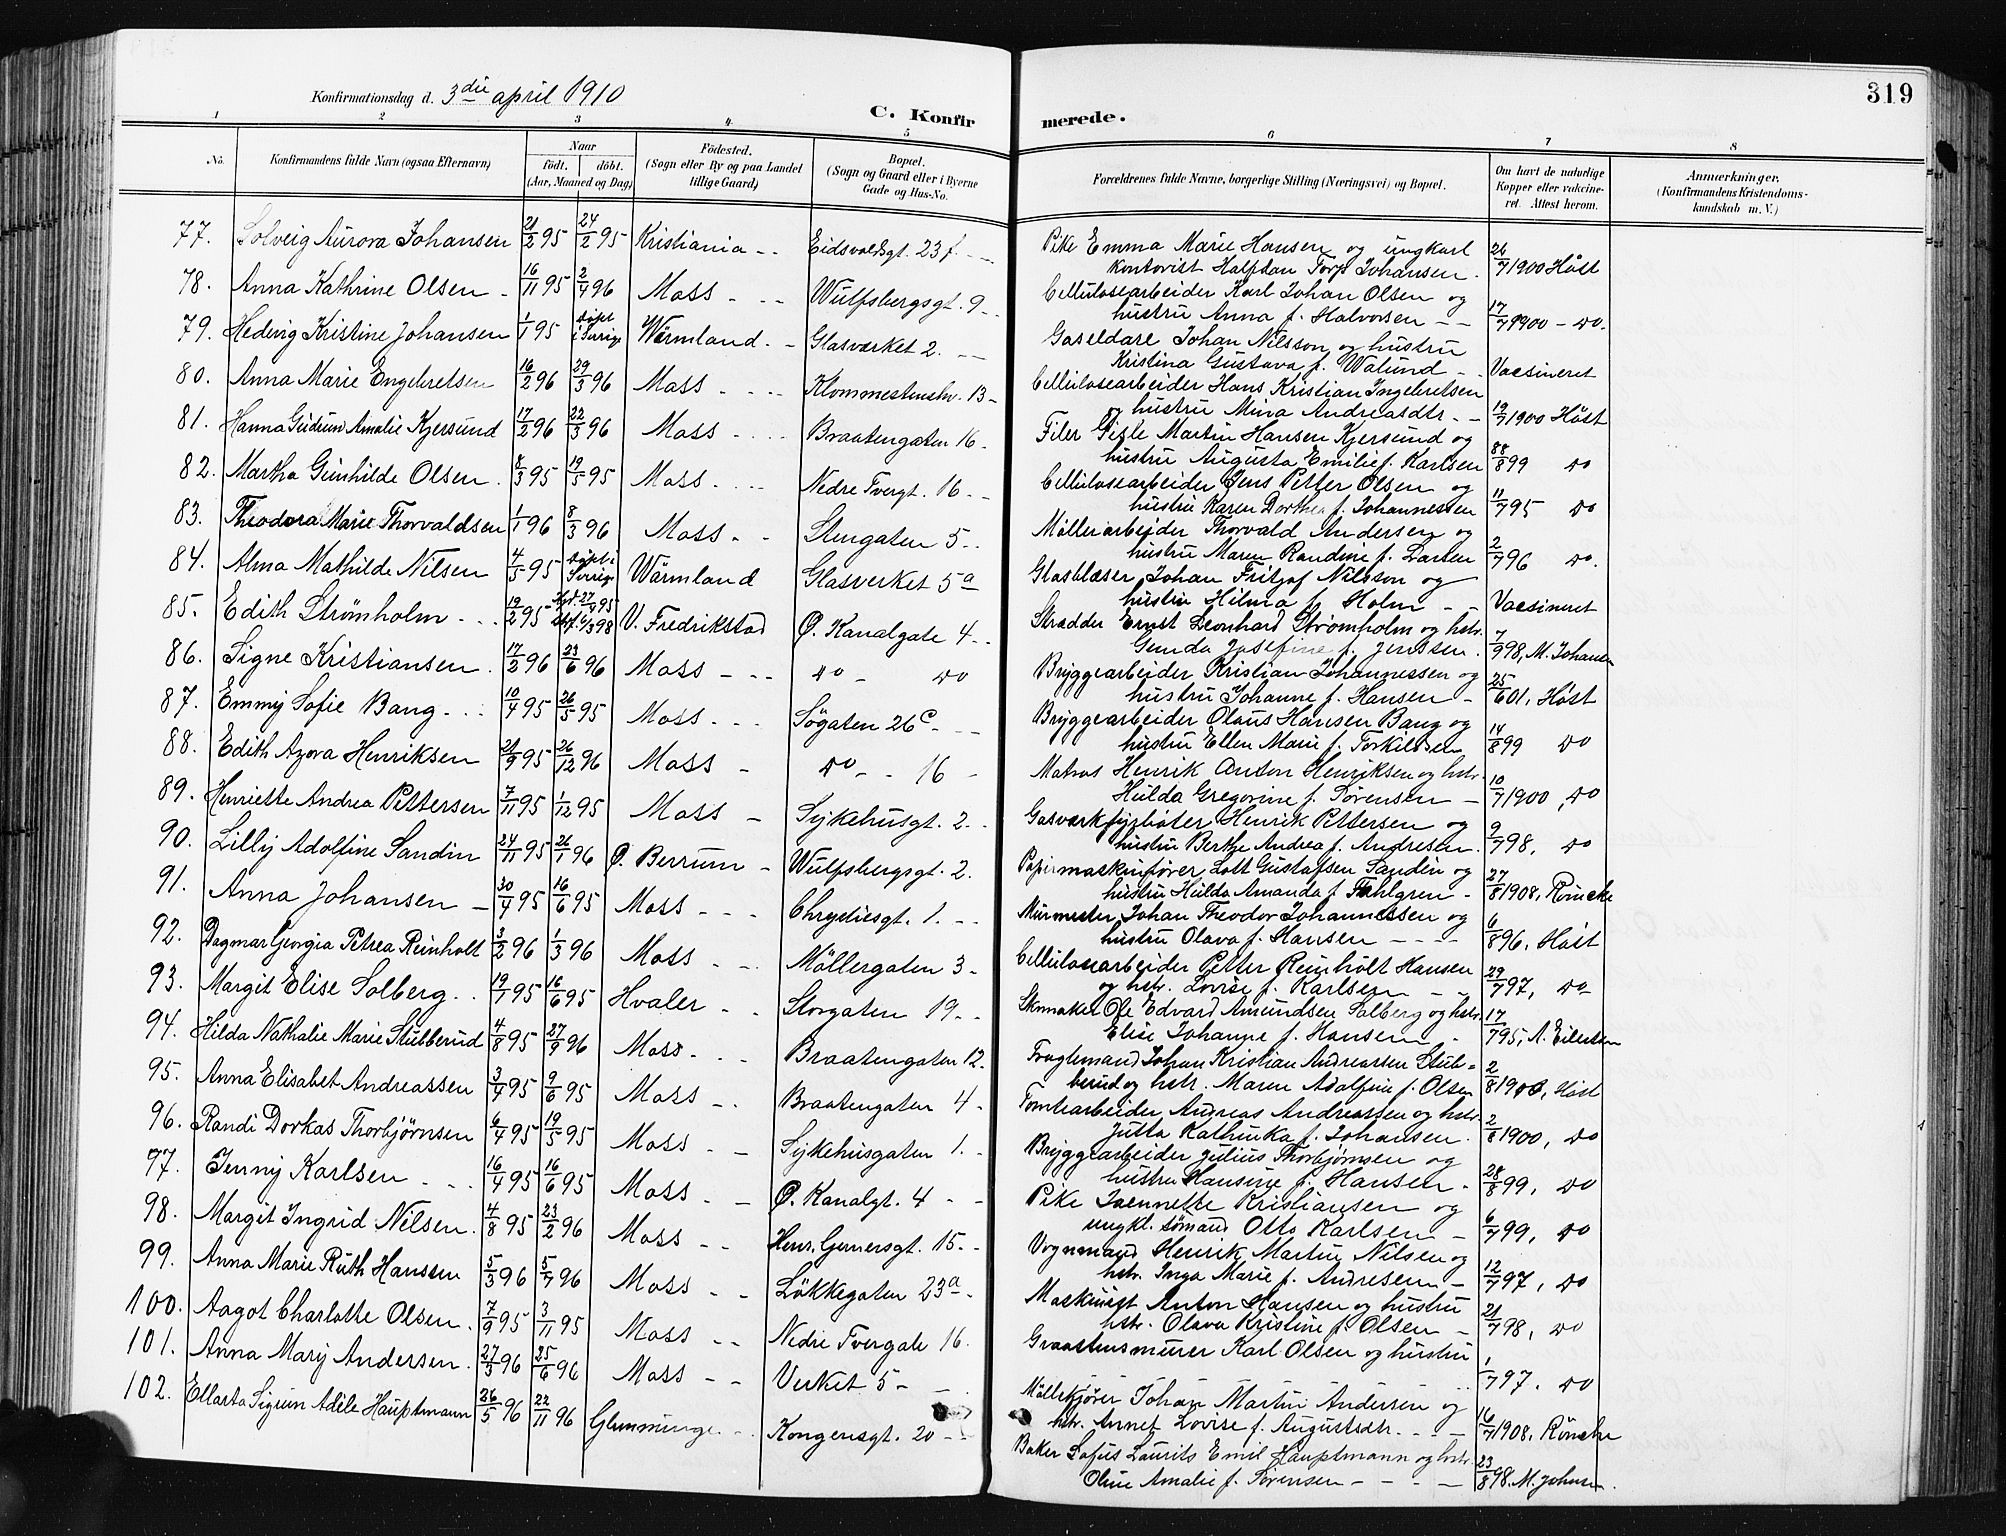 319
Konfirmationsdag d. 3die april 1910
C. Konfirmerede.
1 2 3 4 5 6 7 8
No. Konfirmandens fulde Navn (ogsaa Efternavn) Naar födt. döbt. (Aar, Maaned og Dag) Födested. (Sogn eller By og paa Landet tillige Gaard) Bopæl. (Sogn og Gaard eller i Byerne Gade og Hus-No. Forældrenes fulde Navne, borgerlige Stilling (Næringsvei) og Bopæl. Om havt de naturlige Kopper eller vakcineret. Attest herom. Anmærkninger. (Konfirmandens Kristendomskundskab m. V.)
77. Solveig Aurora Johansen 21/2 95 24/2 95 Kristiania Eidsvoldsgt. 23 f. Pike Emma Marie Hansen og ungkarl
kontorist Halfdan Torp Johansen. 26/7 1900 Høst
78. Anna Kathrine Olsen 16/11 95 2/4 96 Moss Wulfsbergsgt. 9 Cellulosearbeider Karl Johan Olsen og
hustru Anna f. Halvorsen 17/7 1900 do.
79. Hedvig Kristine Johansen 1/1 95 döpt i Sverige Wärmland Glasværket 2. Gaseldare Johan Nilsson og hustru
Kristina Gustava f. Walund Vacsineret
80. Anna Marie Engebretsen 16/2 96 29/3 96 Moss Klommestenshr. 13 Cellulosearbeider Hans Kristian Ingebretsen
og hustru Mina Andreasdtr. 19/7 1900 Høst
81. Hanna Gudrun Amalie Kjersund 17/2 96 22/3 96 Moss Braatengaten 16 Filer Gisle Martin Hansen Kjersund og
hustru Augusta Emilie f. Karlsen 88/8 99 do
82. Martha Gunhilde Olsen 8/3 95 19/5 95 Moss Nedre Tvergt. 16 Cellulosearbeider Jens Petter Olsen og
hustru Karen Dorthea f. Johannessen 11/7 95 do
83. Theodora Marie Thorvaldsen 1/1 96 8/3 96 Moss Stengaten 5 Mölleriarbejder Thorvald Andersen og
hustru Maren Randine f. Larsen 2/7 96 do.
84. Alma Mathilde Nilsen 4/5 95 döpt i Sverige Wärmland Glasverket 5a Glasblæser Johan Fritjof Nilsson og
hustru Hilma f. Holm Vacsineret
85. Edith Strømholm 19/2 95 27/4 95 6/3 98 V. Fredrikstad Ø. Kanalgate 4 Skrædder Ernst Leonhard Strømholm og hstr.
Gunda Josefine f. Jenssen. 7/9 98, M. Johansen
86. Signe Kristiansen 17/2 96 23/6 96 Moss do do Bryggearbeider Kristian Johannessen og
hustru Johanne f. Hansen 25/6 01, Høst
87. Emmy Sofie Bang 10/4 95 26/5 95 Moss Søgaten 26c Bryggearbeider Olaus Hansen Bang og
hustru Ellen Marie f. Torkildsen 14/8 99 do
88. Edith Azora Henriksen 21/9 95 26/12 96 Moss do 16 Matros Henrik Anton Henriksen og hstr.
Hulda Gregorine f. Sørensen 10/7 1900, do
89. Henriette Andrea Pettersen 7/11 95 1/12 95 Moss Sykehusgt. 2. Gasværksfyrbøter Henrik Pettersen og
hustru Berthe Andrea f. Andresen 9/7 98, do
90. Lilly Adolfine Sandin 24/11 95 26/1 96 Ø. Berrum Wulfsbergsgt. 2. Papirmaskinfører Lott Gustafsen Sandin og
hustru Hulda Amanda f. Fahlgren 27/8 1908, Röncke
91. Anna Johansen 30/4 95 16/6 95 Moss Chrystiesgt. 1. Murmester Johan Theodor Johannessen og
hustru Olava f. Hansen 6/8 96, Høst
92. Dagmar Georgia Petrea Reinholt 3/2 96 1/3 96 Moss Möllergaten 3 Cellulosearbeider Petter Reinholt Hansen
og hstr. Lovise f. Karlsen 29/7 97, do
93. Margit Elise Solberg 19/1 95 16/6 95 Hvaler Storgaten 19 Skomaker Ole Edvard Amundsen Solberg og hstr.
Elise Johanne f. Hansen 17/7 95, A. Eilertsen
94. Hilda Nathalie Marie Stubberud 4/8 95 27/9 96 Moss Braatengaten 12. Fragtemand Johan Kristian Andreassen Stub-
berud og hstr. Maren Adolfine f. Olsen 2/8 1903, Høst
95. Anna Elisabet Andreassen 3/4 95 9/6 95 Moss Braatengaten 4 Tomtearbeider Andreas Andreassen og hstr.
Jutta Kathinka f. Johansen. 2/8 1900, do
96. Randi Dorkas Thorbjørnsen 6/4 95 19/5 95 Moss Sykehusgaten 1. Bryggearbeider Julius Thorbjørnsen og
hustru Hansine f. Hansen 28/8 99, do
77. Jenny Karlsen 16/4 95 16/6 95 Moss Ø. Kanalgt. 4 Pike Jeannette Kristiansen og
ungkl. sømand Otto Karlsen 6/7 99, do
98. Margit Ingrid Nilsen 4/8 95 23/2 96 Moss Henr. Gernersgt. 15 Vognmand Henrik Martin Nilsen og
hstr. Inga Marie f. Andresen 12/7 97, do
99. Anna Marie Ruth Hansen 5/3 96 5/7 96 Moss Løkkegaten 23a Maskinist Anton Hansen og hustru
hstr. Olava Kristine f. Olsen 21/7 98, do
100. Aagot Charlotte Olsen 7/9 95 3/11 95 Moss Nedre Tvergate 16. Graastensmurer Karl Olsen og hustru
1/7 97. do
101. Anna Mary Andersen 27/3 96 25/6 96 Moss Verket 5 Möllekjører Johan Martin Andersen og
hstr. Annet Lovise f. Augustsdtr. 16/7 1908, Röncke
102. Ellasta Sigrun Adéle Hauptmann 26/5 96 22/11 96 Glemminge Kongensgt. 20 Baker Sofus Laurits Emil Hauptmann og hstr.
Oline Amalie f. Sørensen 23/8 98. M. Johnsen.